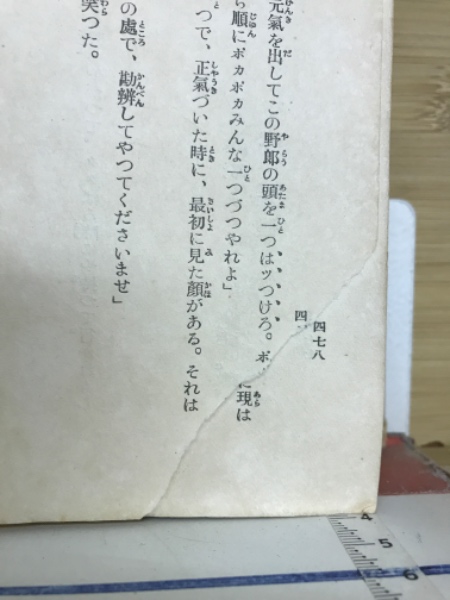 四七八
四
元氣を出してこの野郎の頭を一つはッつけろ。ポ
に現は
ら順にポカポカみんな一つづつやれよ」
つで、正氣づいた時に、最初に見た顔がある。それは
の處で、勘辨してやつてくださいませ」
笑つた。
4
5
6